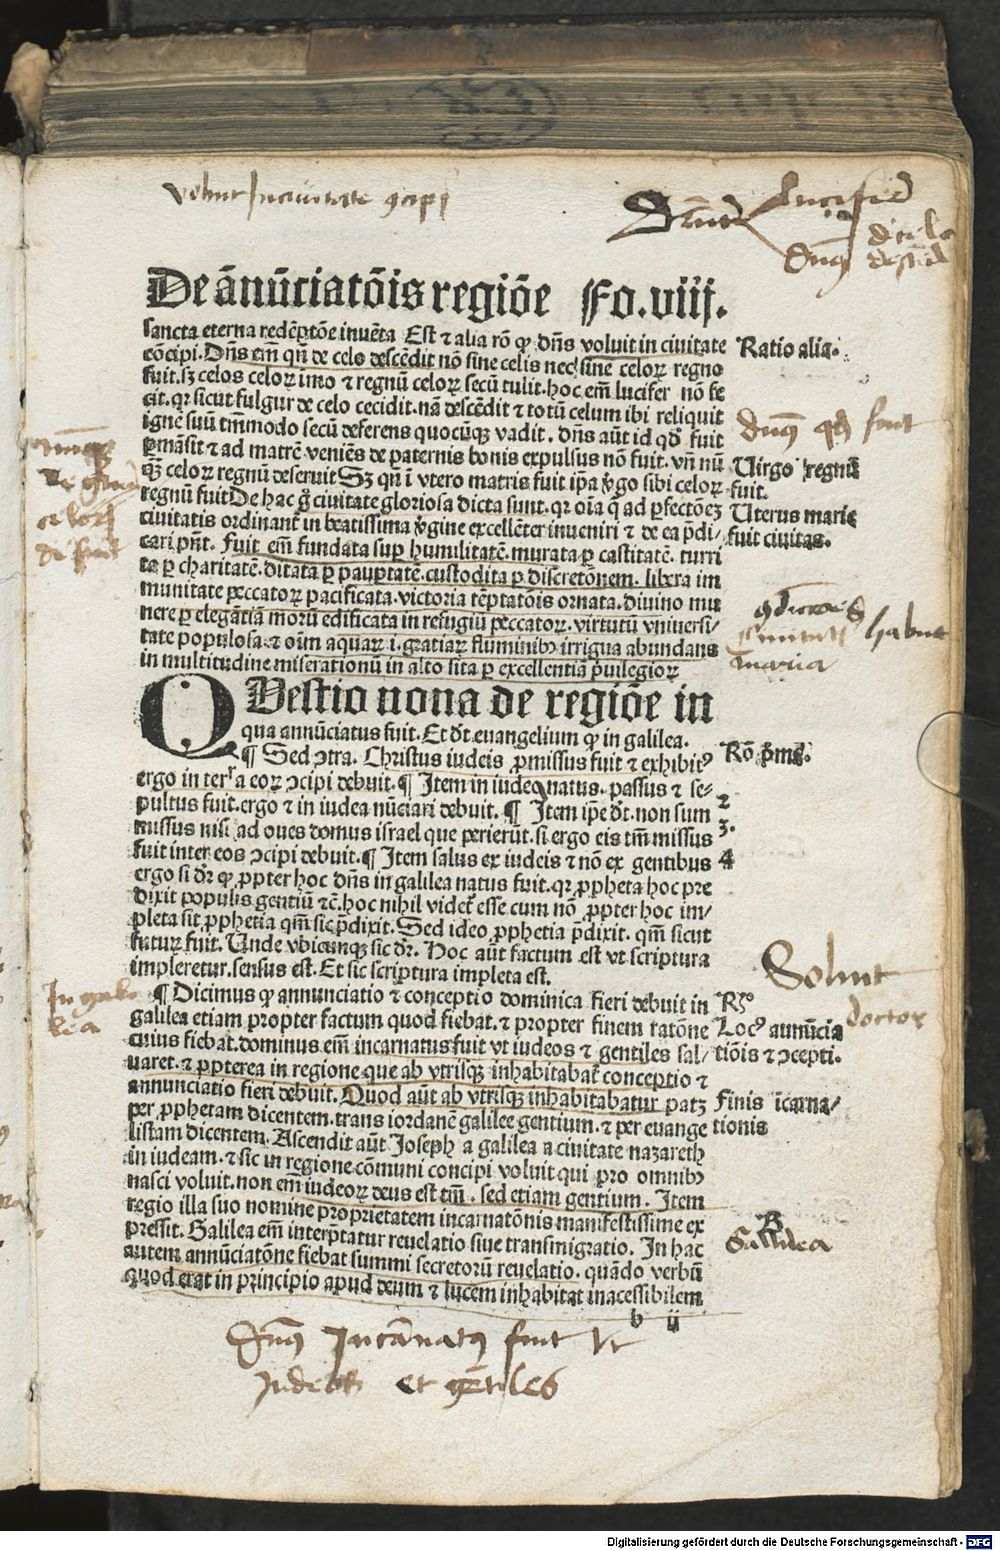 voluit In ciuitate ꝯcipi
Lucifer
De ānūciatōis regiōe Fo. viij.
sancta eterna redēptōe inuēta Est ⁊ alia rō ꝙ dn̄s voluit in ciuitate
cōcipi. Dn̄s em̄ qn̄ de celo descēdit nō sine celis nec sine celoꝝ regno
fuit. sꝫ celos celoꝝ imo ⁊ regnū celoꝝ secū tulit. hoc em̄ lucifer nō fe
cit. qꝛ sicut fulgur de celo cecidit. nā descēdit ⁊ totū celum ibi reliquit
igne suū tm̄modo secū deferens quocūqꝫ vadit. dn̄s aūt id qd̄ fuit
ꝑmāsit ⁊ ad matrē veniēs de paternis bonis expulsus nō fuit. vn̄ nū
qꝫ celoꝝ regnū deseruit Sꝫ qn̄ ī vtero matris fuit ip̄a v̄go sibi celoꝝ
regnū fuit De hac ḡ ciuitate gloriosa dicta sunt. qꝛ oīa q̄ ad ꝑfectōeꝫ
ciuitatis ordinant᷑ in beatissima v̄gine excellēter inueniri ⁊ de ea p̄di/
cari pn̄t. Fuit em̄ fundata suꝑ humilitatē. murata ꝑ castitatē. turri
ta ꝑ charitatē. ditata ꝑ pauꝑtatē. custodita ꝑ discretōnem. libera im
munitate peccatoꝝ pacificata. victoria tēptatōis ornata. diuino mu
nere ꝑ elegātiā morū edificata in refugiū peccatoꝝ. virtutū vniuersi/
tate populosa. ⁊ oīm aquaꝝ .i. gratiaꝝ fluminibꝰ irrigua abundans
in multitudine miserationū in alto sita ꝑ excellentiā p̄uilegioꝝ
Ratio alia.
dn̄us qd̄ fuit
Virgo regnū
fuit.
Uterus marie
fuit ciuitas.
ciuitatis habuit
maria
QUestio nona de regiōe in
qua annūciatus fuit. Et dt̄ euangelium ꝙ in galilea.
¶ Sed ꝯtra. Christus iudeis ꝓmissus fuit ⁊ exhibitꝰ
ergo in terra eoꝝ ꝯcipi debuit. ¶ Item in iudea natus. passus ⁊ se-
pultus fuit. ergo ⁊ in iudea nūciari debuit. ¶ Item ip̄e dt̄. non sum
missus nisi ad oues domus israel que perierūt. si ergo eis tm̄ missus
fuit inter eos ꝯcipi debuit. ¶ Item salus ex iudeis ⁊ nō ex gentibus
ergo si dr̄ ꝙ ꝓpter hoc dn̄s in galilea natus fuit. qꝛ ꝓpheta hoc pre
dixit populis gentiū ⁊c̄. hoc nihil videt᷑ esse cum nō ꝓpter hoc im/
pleta sit ꝓphetia qm̄ sic p̄dixit. Sed ideo ꝓphetia p̄dixit. qm̄ sicut
futuꝝ fuit. Unde vbicunqꝫ sic dr̄. Hoc aūt factum est vt scriptura
impleretur. sensus est. Et sic scriptura impleta est.
Rō pma.
2
3.
4
Soluit
doctor
¶ Dicimus ꝙ annunciatio ⁊ conceptio dominica fieri debuit in
galilea etiam propter factum quod fiebat. ⁊ propter finem ratōne
cuius fiebat. dominus em̄ incarnatus fuit vt iudeos ⁊ gentiles sal/
uaret. ⁊ ꝓpterea in regione que ab vtrisqꝫ inhabitabat᷑ conceptio ⁊
annunciatio fieri debuit. Quod aūt ab vtrisqꝫ inhabitabatur patꝫ
per ꝓphetam dicentem. trans iordanē galilee gentium. ⁊ per euange
listam dicentem. Ascendit aūt Joseph a galilea a ciuitate nazareth
in iudeam. ⁊ sic in regione cōmuni concipi voluit qui pro omnibꝰ
nasci voluit. non em̄ iudeoꝝ deus est tm̄. sed etiam gentium. Item
regio illa suo nomine proprietatem incarnatōnis manifestissime ex
pressit. Galilea em̄ interp̄tatur reuelatio siue transmigratio. In hac
autem annūciatōne fiebat summi secretorū reuelatio. quādo verbū
quod erat in principio apud deum ⁊ lucem inhabitat inacessibilem
In gali
lea
Rꝰ
Locꝰ annūcia
tiōis ⁊ ꝯcepti.
Finis īcarna/
tionis
B
Gallilea
b ij
dn̄us Incarnatus fuit vt
Iudeos et gentiles